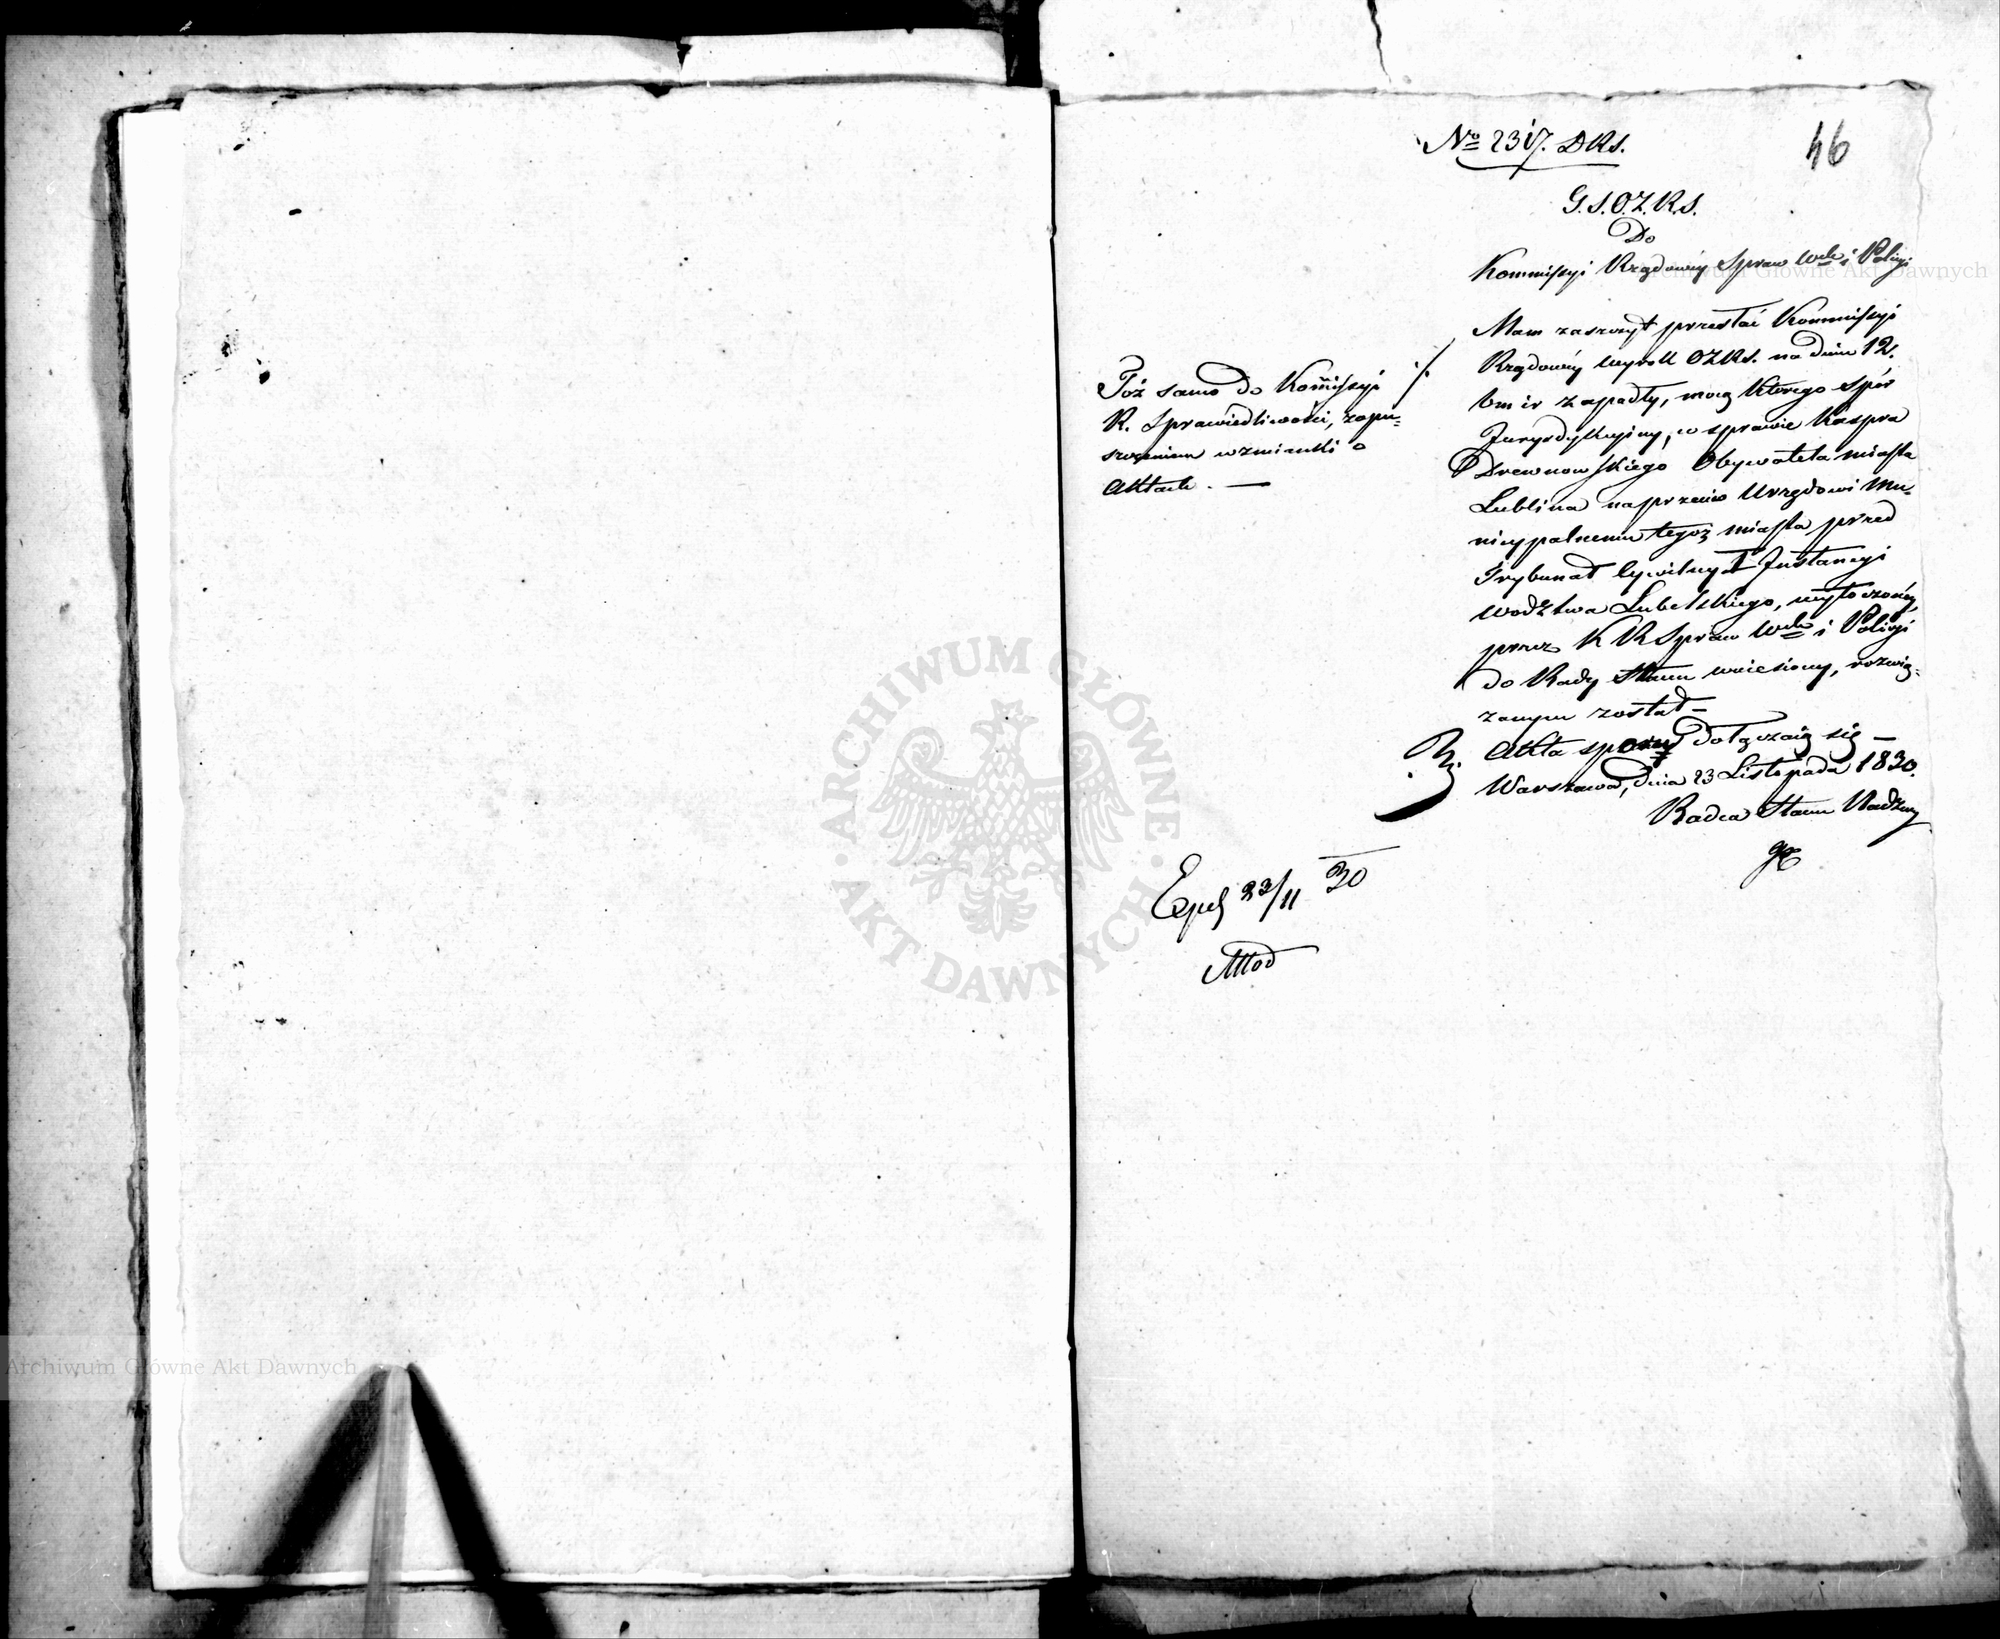 46
No 2317. DRS.
G.S.O.Z.R.S.
Do
Kommissyi Rządowéy Spraw Weh i Policyi
Mam zaszczyt przesłać Kommissyi
Rządowéy wyrok OZRS. na dniu 12.
bm i r zapadły, mocą którego spór
Jurysdykcyiny, w sprawie Kaspra
Drewnowskiego Obywatela miasta
Lublina naprzeciw Urzędowi Mu-
nicypalnemu tegoż miasta, przed
Trybunał Cywilny I Instancyi
Wodztwa Lubelskiego, wytoczonéy,
przez K R Spraw Weh i Policyi
do Rady Stanu wniesiony, rozwią-
zanym został —
Akta sporu dołączaią się —
Warszawa, dnia 23 Listopada 1830.
Radca Stanu Nadzwy
Toż samo do Kommissyi
R. Sprawiedliwości, z opu-
szczeniem wzmianki o
Aktach. —
Exped 23/11 30
Archiwum Główne Akt Dawnych
ARCHIWUM GŁÓWNE
AKT DAWNYCH
Archiwum Główne Akt Dawnych